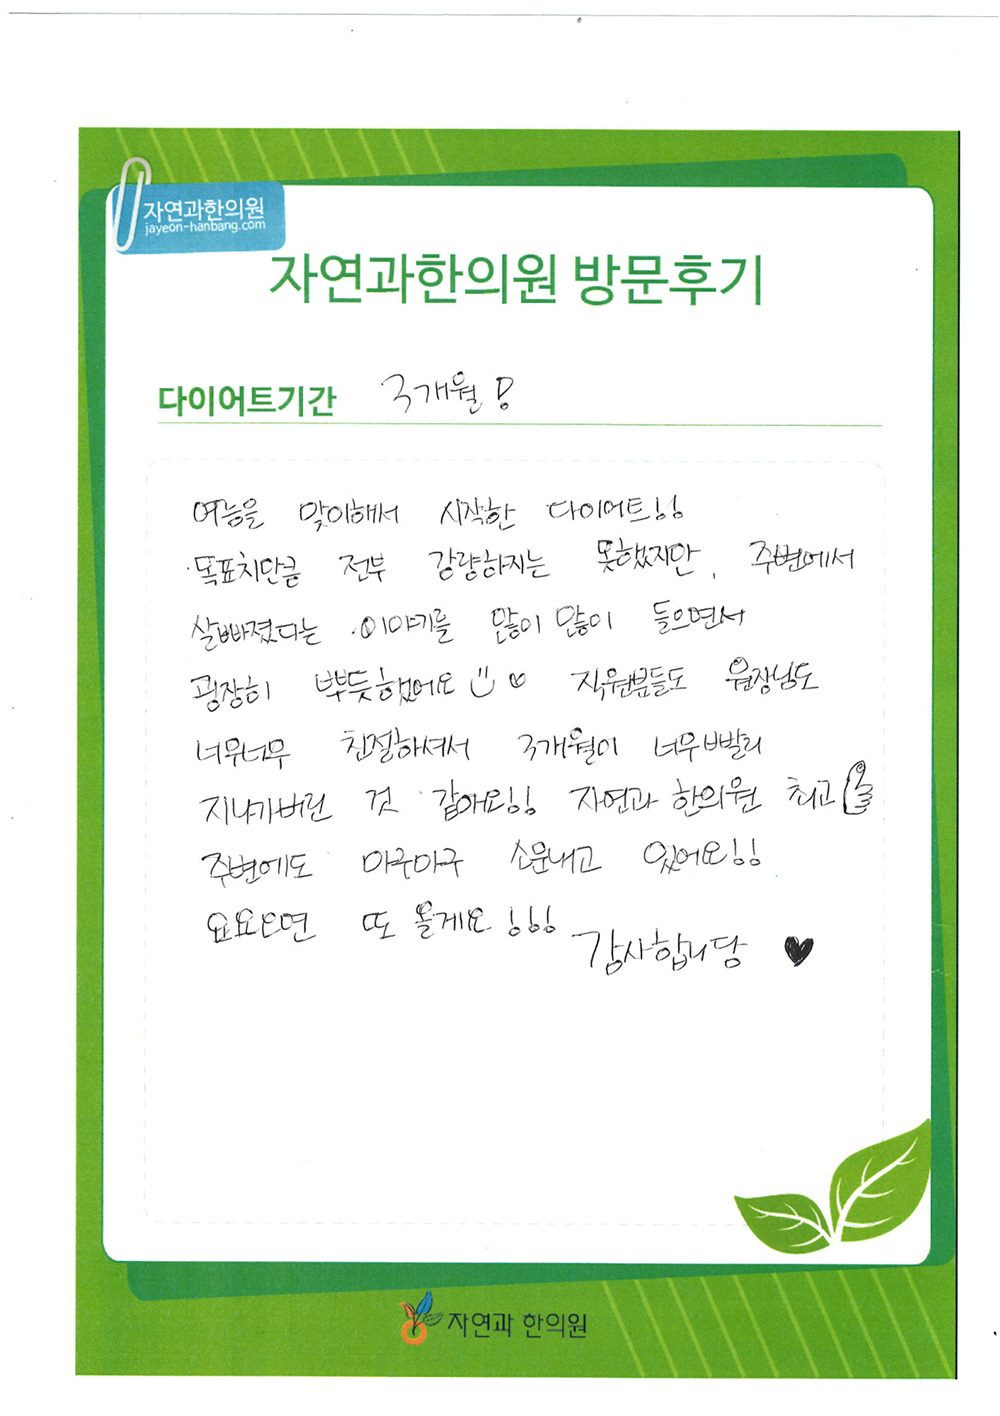 자연과한의원
jayeon-hanbang.com
자연과한의원 방문후기
다이어트기간 3개월!
여름을 맞이해서 시작한 다이어트!!
목표치만큼 전부 감량하지는 못했지만, 주변에서
살빠졌다는 이야기를 많이 많이 들으면서
굉장히 뿌듯했어요 직원분들도 원장님도
너무너무 친절하셔서 3개월이 너무 빨리
지나가버린 것 같아요!! 자연과 한의원 최고
주변에도 마구마구 소문내고 있어요!!
요요오면 또 올게요!!!
감사합니당 ♥
자연과 한의원